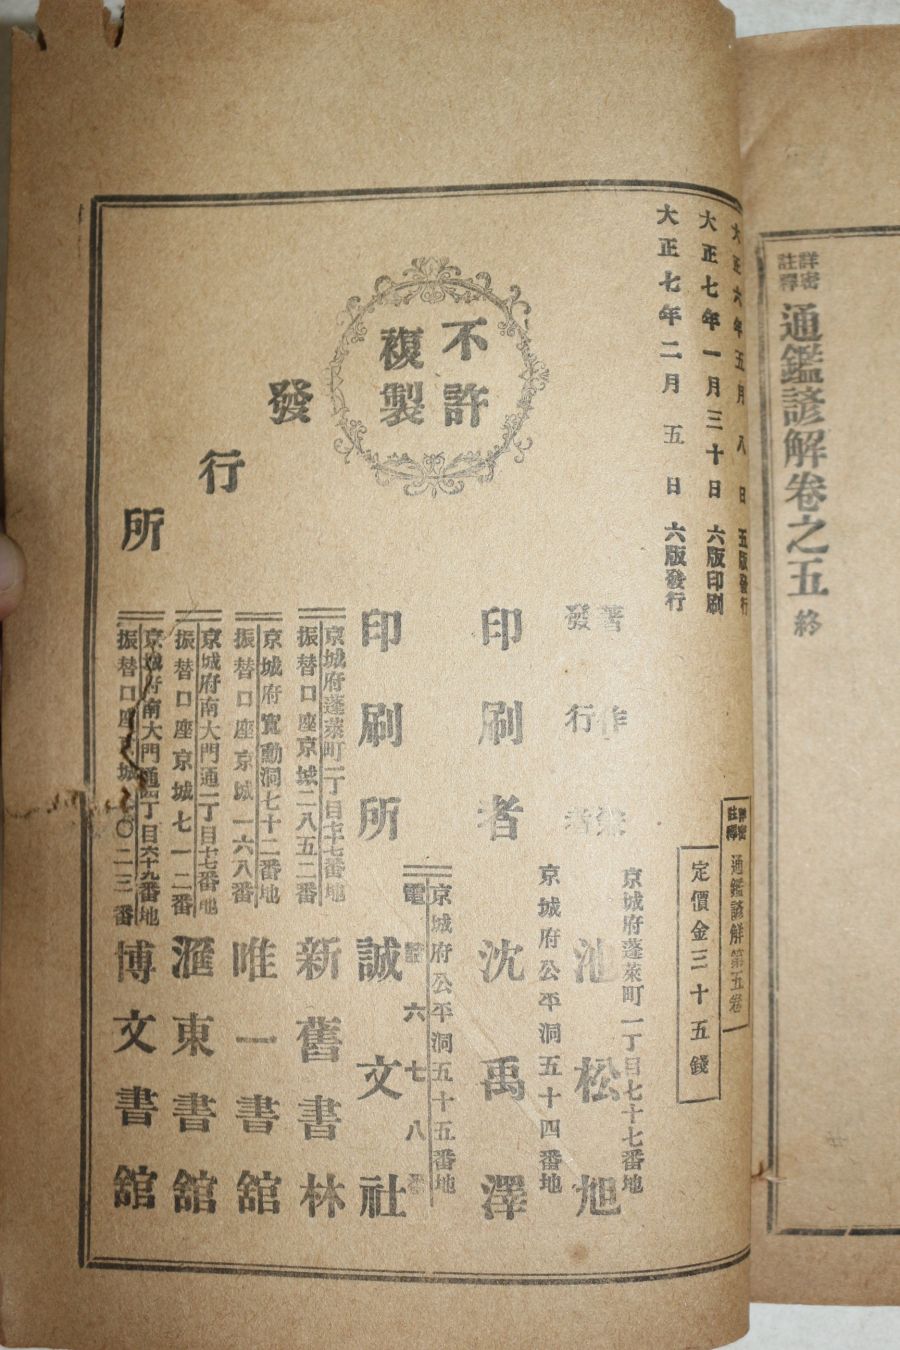 詳密
註釋
通鑑諺解卷之五 終
大正六年五月八日 五版發行
大正七年一月三十日 六版印刷
大正七年二月五日 六版發行
詳密
註釋
通鑑諺解第五卷
定價金三十五錢
不許
複製
著作兼
發行者
京城府蓬萊町一丁目七十七番地
池松旭
京城府公平洞五十四番地
印刷者 沈禹澤
京城府公平洞五十五番地
電話六七八番
印刷所 誠文社
發行所
京城府蓬萊町一丁目七十七番地
振替口座京城二八五二番
新舊書林
京城府寬勳洞七十二番地
振替口座京城一六八番
唯一書館
京城府南大門通一丁目十七番地
振替口座京城七一二番
滙東書館
京城府南大門通四丁目六十九番地
振替口座京城二〇二三番
博文書館